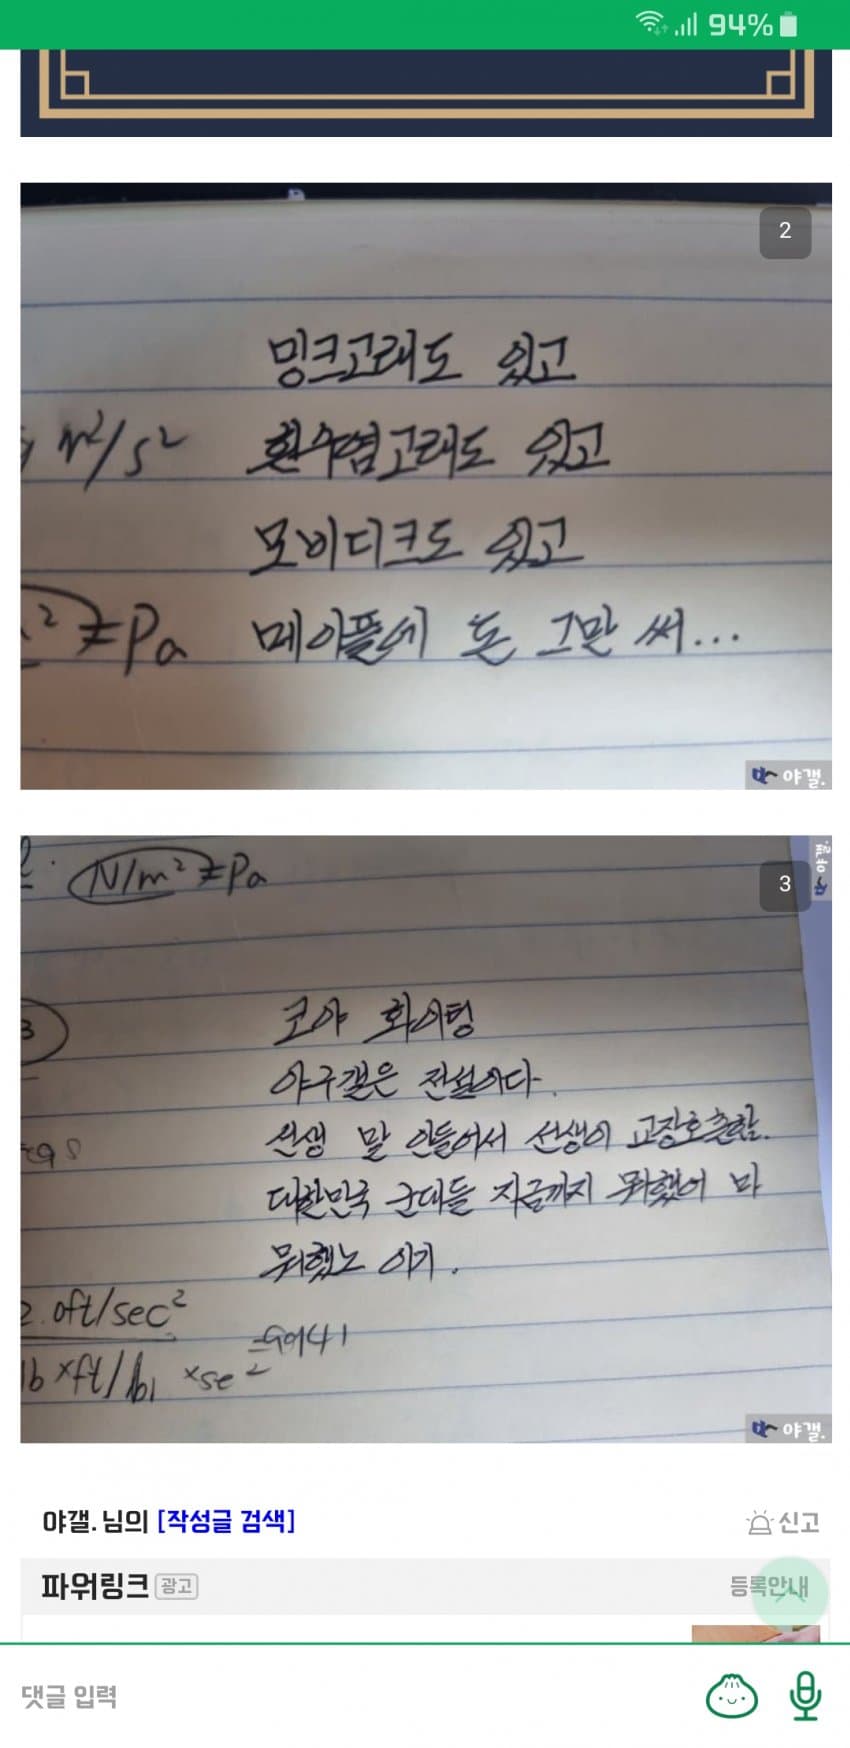 94%
2
밍크고래도 있고
m²/s² 흰수염고래도 있고
모비디크도 있고
²≠Pa 메이플에 돈 그만 써...
야갤.
N/m²≠Pa
3
야갤.
3
코야 화이팅
야구갤은 전설이다.
선생 말 안들어서 선생이 교장호출함.
대한민국 군대들 지금까지 뭐했어 마
뭐했노 이기.
2.0ft/sec²
lb×ft/lb₁ ×se
야갤.
야갤. 님의 [작성글 검색]
신고
파워링크 광고
등록안내
댓글 입력